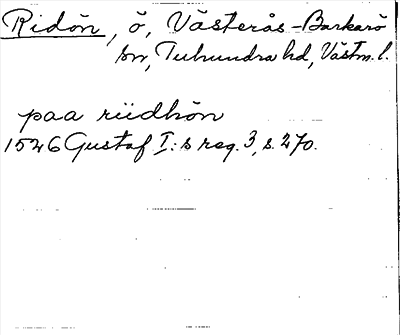 Ridön, ö, Västerås-Barkarö
sn, Tuhundra hd, Västm. l.
paa riidhön
1526 Gustaf I:s reg. 3, s. 270.